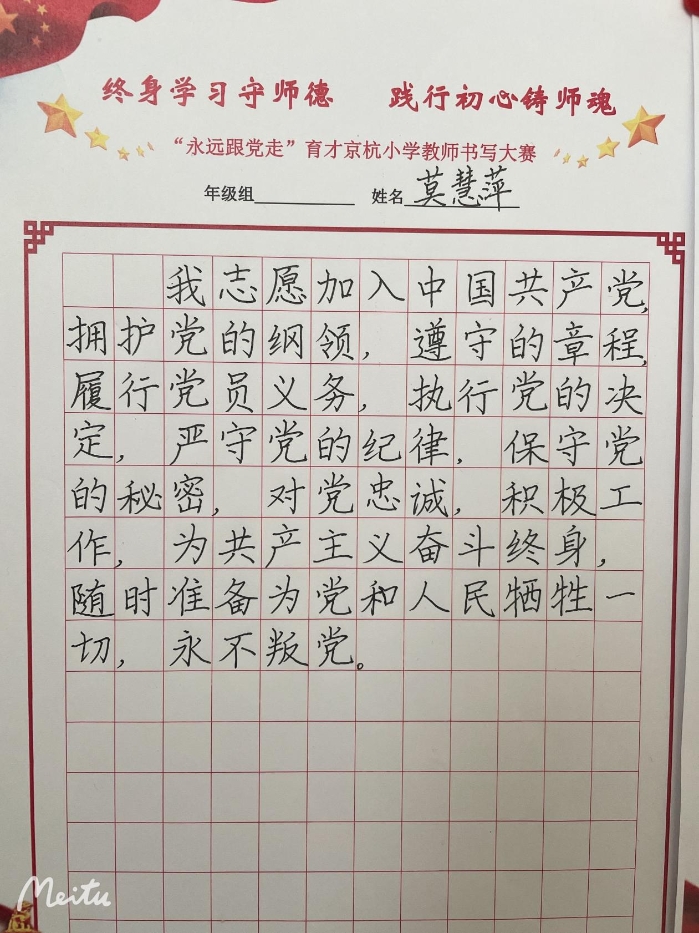 终身学习守师德 践行初心铸师魂
“永远跟党走”育才京杭小学教师书写大赛
年级组 姓名 莫慧萍
我志愿加入中国共产党,
拥护党的纲领, 遵守的章程,
履行党员义务, 执行党的决
定, 严守党的纪律, 保守党
的秘密, 对党忠诚, 积极工
作, 为共产主义奋斗终身,
随时准备为党和人民牺牲一
切, 永不叛党。
Meitu